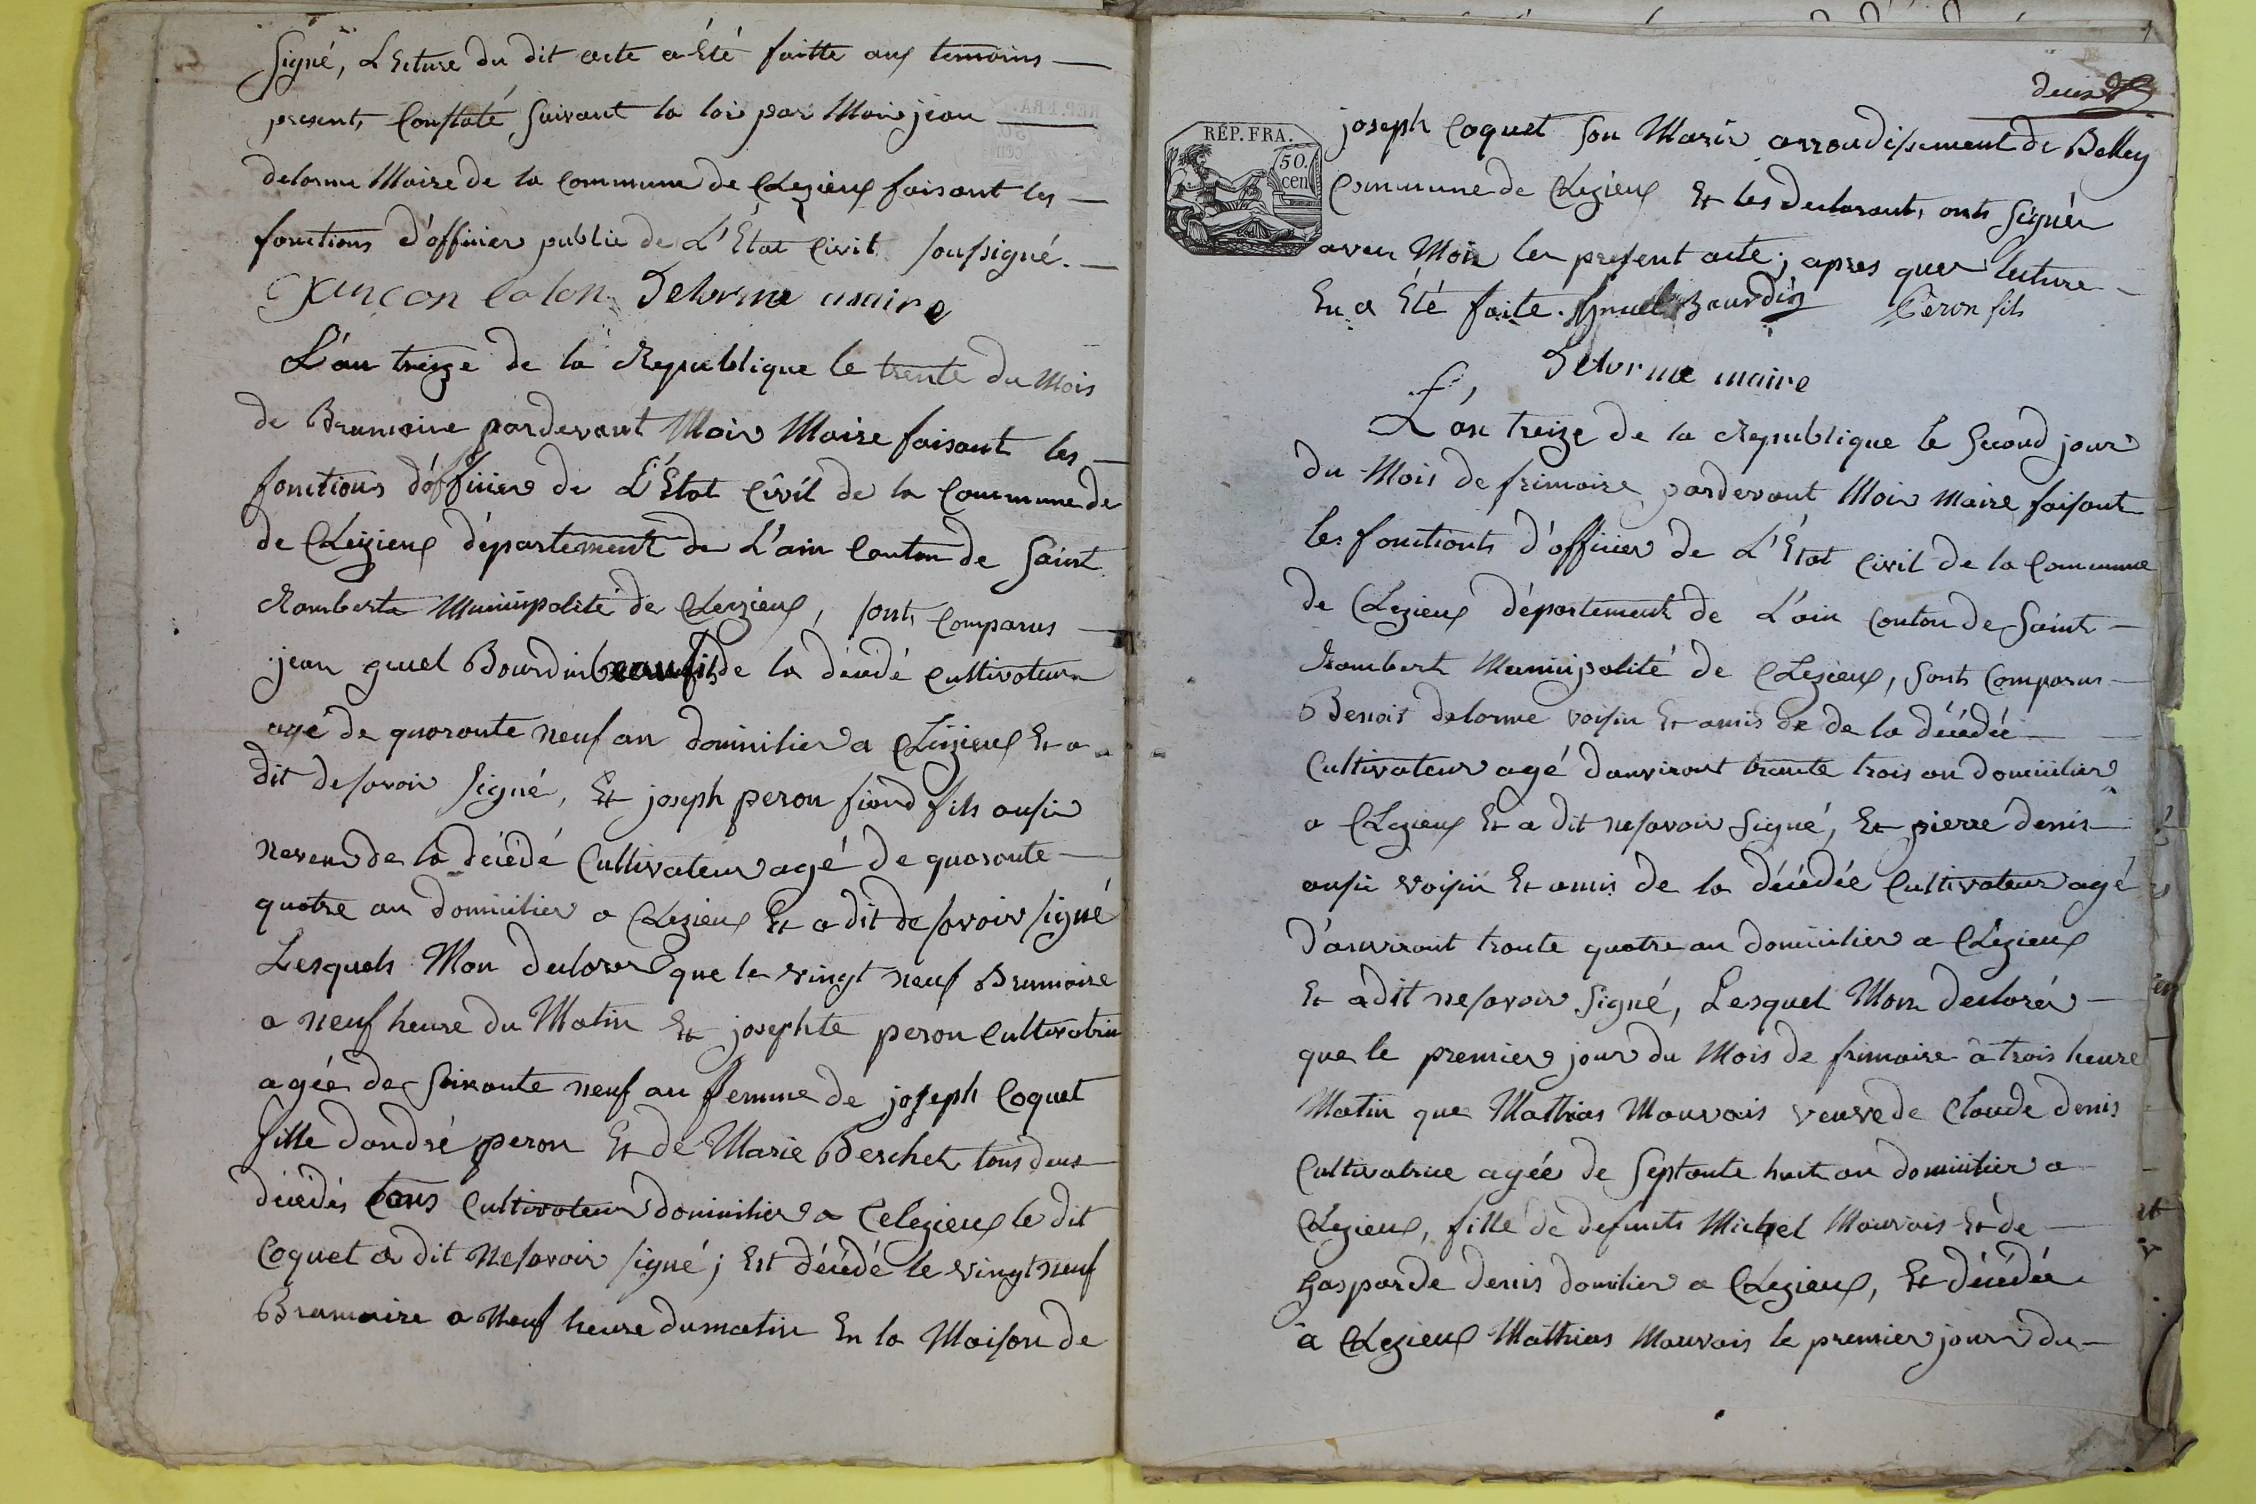 signé, LEcture du dit acte a Été faitte aux temoins
present, Constaté suivant la loi par Moi jean
delorme Maire de la Commune de Clezieux faisant les
fonctions d'officier public de L'État Civil soussigné.
françon colon Delorme maire
L'an treize de la Republique le trente du Mois
de Brumaire pardevant Moi Maire faisant les
fonctions d'officier de L'État Civil de la Commune de
de Cleizieux département de L'ain Conton de Saint
Rambert Municipalité de Clezieux, sont Comparus
jean gruel Bourdin beaufils de la décédé Cultivateur
agé de quarante neuf an domicilier a Cleizieux Et a
dit de savoir signé, Et joseph peron fils ausi
neveu de la décédé Cultivateur agé de quarante
quatre an domicilier a Clezieux Et a dit de savoir signé
Lesquels Mon declarer que le vingt neuf Brumaire
a neuf heure du Matin Et josephte peron Cultivatrice
agée de Soixante neuf an femme de joseph Coquet
fille dandré peron Et de Marie Berchet tous deux
décédés tous Cultivateur domicilier a Celezieux le dit
Coquet a dit ne savoir signé; Est décédé le vingt neuf
Brumaire a Neuf heure du matin En la Maison de
deux
REP. FRA.
50.
cen
joseph Coquet son Mari arrondissement de Belley
Commune de Clezieux Et les declarants onts signér
avec Moi le present acte; apres que lecture
En a Été faite. gruel Bourdin Peron fils
Delorme maire
L'an treize de la Republique le Second jour
du Mois de frimaire pardevant Moi Maire faisant
les fonctionts d'officier de L'État Civil de la Commune
de Clezieux département de L'ain Conton de Saint
Rambert Municipalité de Clezieux, sont Comparus
Benoit delorme voisin Et amis de de la décédée
Cultivateur agé danviront trante trois an domicilier
a Clezieux Et a dit ne savoir signé, Et pierre denis
ausi voisin Et amis de la décédée Cultivateur agé
d'anviront trante quatre an domicilier a Clezieux
Et a dit ne savoir signé, Lesquel Mon declarér
que le premier jour du Mois de frimaire à trois heure
Matin que Mathias Mauvais veuve de Claude denis
Cultivatrice agée de Septante huit an domicilier a
Clezieux, fille de defunts Michel Mauvais Et de
gasparde denis domilier a Clezieux, Et décédée
à Clezieux Mathias Mauvais le premier jour du